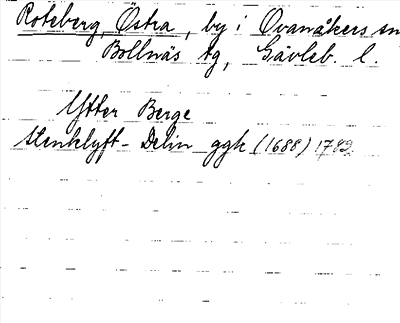 Roteberg, Östra, by i Ovanåkers sn
Bollnäs tg, Gävleb. l.
Ytter Berge
Stenklyft - Delin ggk (1688) 1782